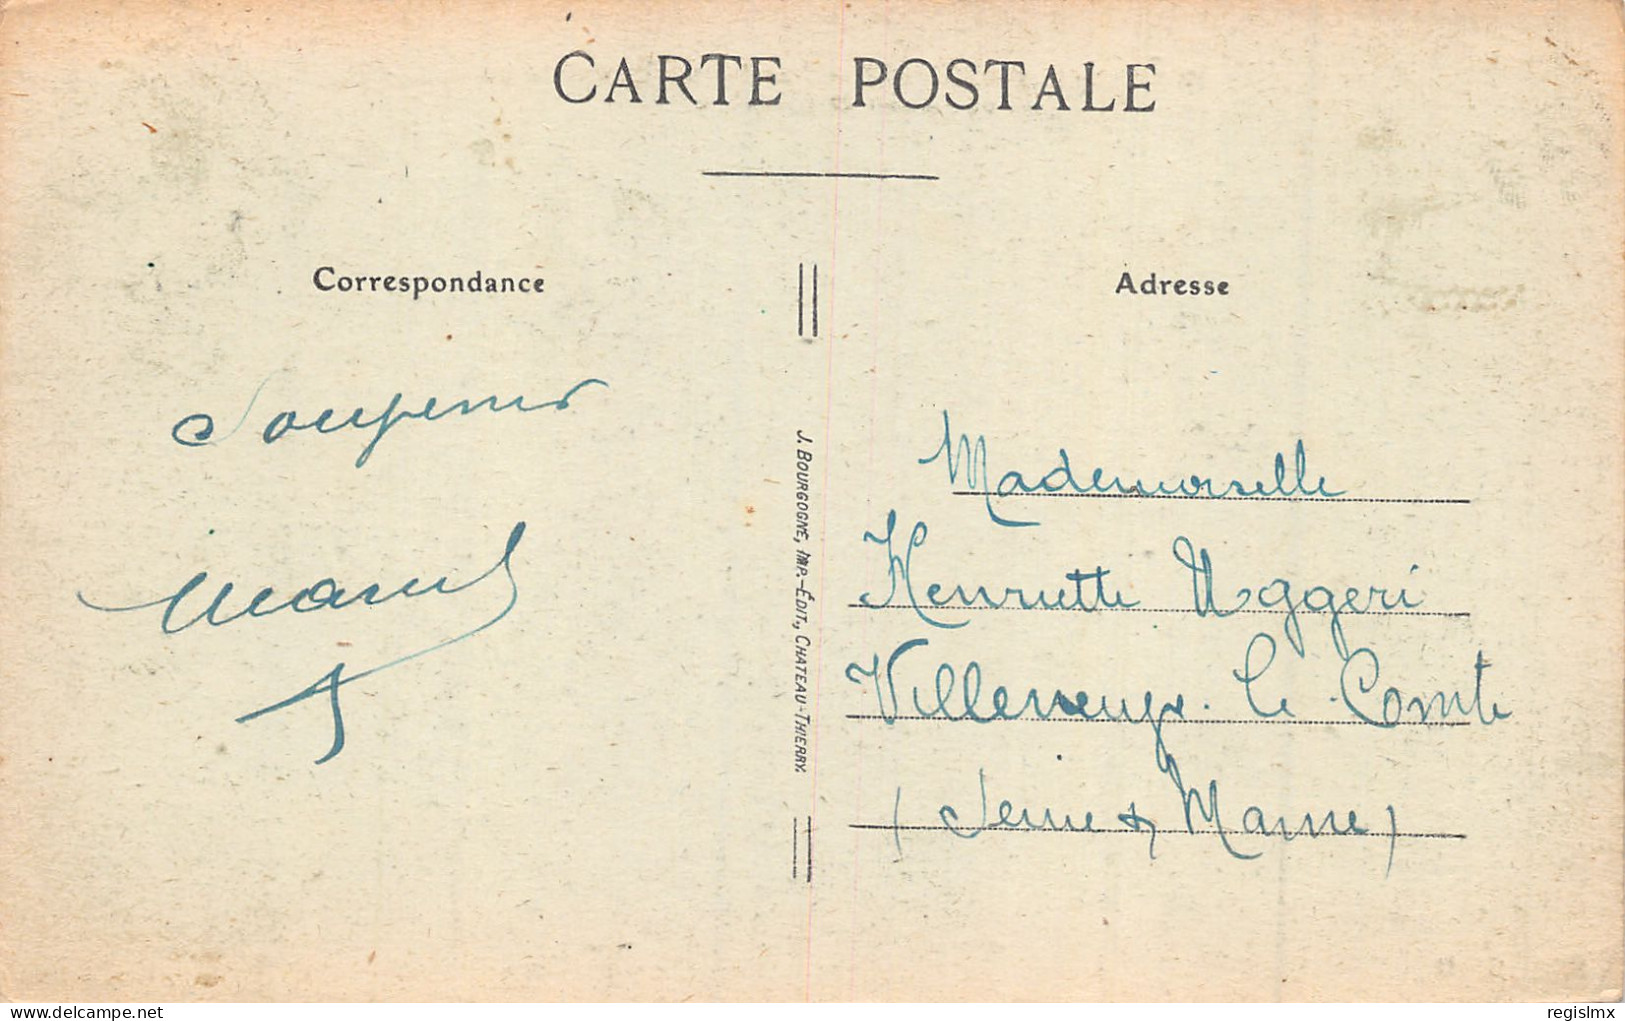 CARTE POSTALE
Correspondance
Adresse
Souvenir
Marcel
J. BOURGOGNE, IMP.-ÉDIT., CHATEAU-THIERRY.
Mademoiselle
Henriette Uggeri
Villeneuve-le-Comte
(Seine & Marne)
delcampe.net
regislmx